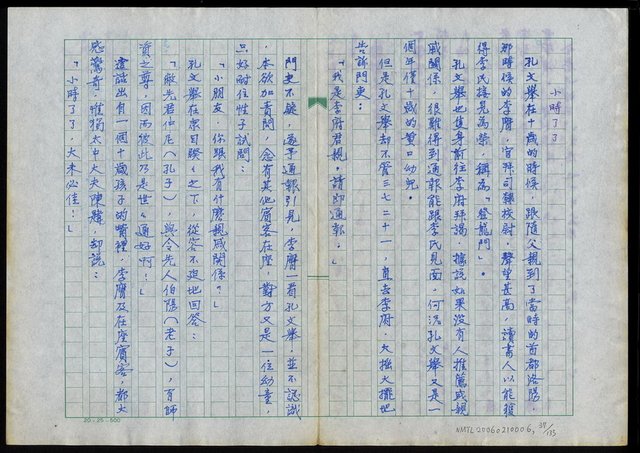 小時了了
孔文舉在十歲的時候，跟隨父親到了當時的首都洛陽，
那時候的李膺，官拜司隸校尉，聲望甚高，讀書人以能獲
得李氏接見為榮，稱為「登龍門」。
孔文舉也隻身前往李府拜謁，據說如果沒有人推薦或親
戚關係，很難得到通報能跟李氏見面，何況孔文舉又是一
個年僅十歲的黃口幼兒。
但是孔文舉却不管三七二十一，直去李府，大搖大擺地
告訴門吏：
「我是李府君親，請即通報。」
門吏不疑，遂予通報引見，李膺一看孔文舉，並不認識
，本欲加責問，念有其他賓客在座，對方又是一位幼童，
只好耐住性子試問：
「小朋友，你跟我有什麼親戚關係？」
孔文舉在眾目睽々之下，從容不迫地回答：
「敝先君仲尼（孔子），與令先人伯陽（老子），有師
資之尊，因而彼此乃是世々通好啊！」
這話出自一個十歲孩子的嘴裡，李膺及在座賓客，都大
感驚奇，惟獨太中大夫陳韙，却說：
「小時了了，大未必佳！」
20×25=500
NMTL20060210006, 39/135